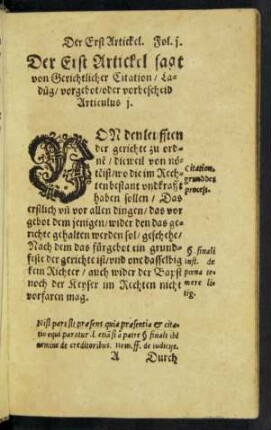 Der Erst Artickel. Fol. j.
Der Erst Artickel sagt
von Gerichtlicher Citation / La-
düg / vorgebot / oder vorbescheid
Articulus j.
VON den leufften
der gerichte zu ord-
nē / dieweil von nö-
tē ist / wo die im Rech-
ten bestant vnd krafft
haben sollen / Das
erstlich vn̄ vor allen dingen / das vor
gebot dem jenigen / wider den das ge-
richte gehalten werden sol / geschehe /
Nach dem das fürgebot ein grund-
feste der gerichte ist / vnd one dasselbig
kein Richter / auch wider der Bapst
noch der Keyser im Rechten nicht
vorfaren mag.
Citation,
grund des
process.
§ finali
inst. de
poena te-
mere li-
tig.
Nisi pars sit præsens quia præsentia & cita-
tio equi paratur .l. etiā si à patre § finali ibi
nomine de creditoribus. Item. ff. de iudicijs.
A Durch